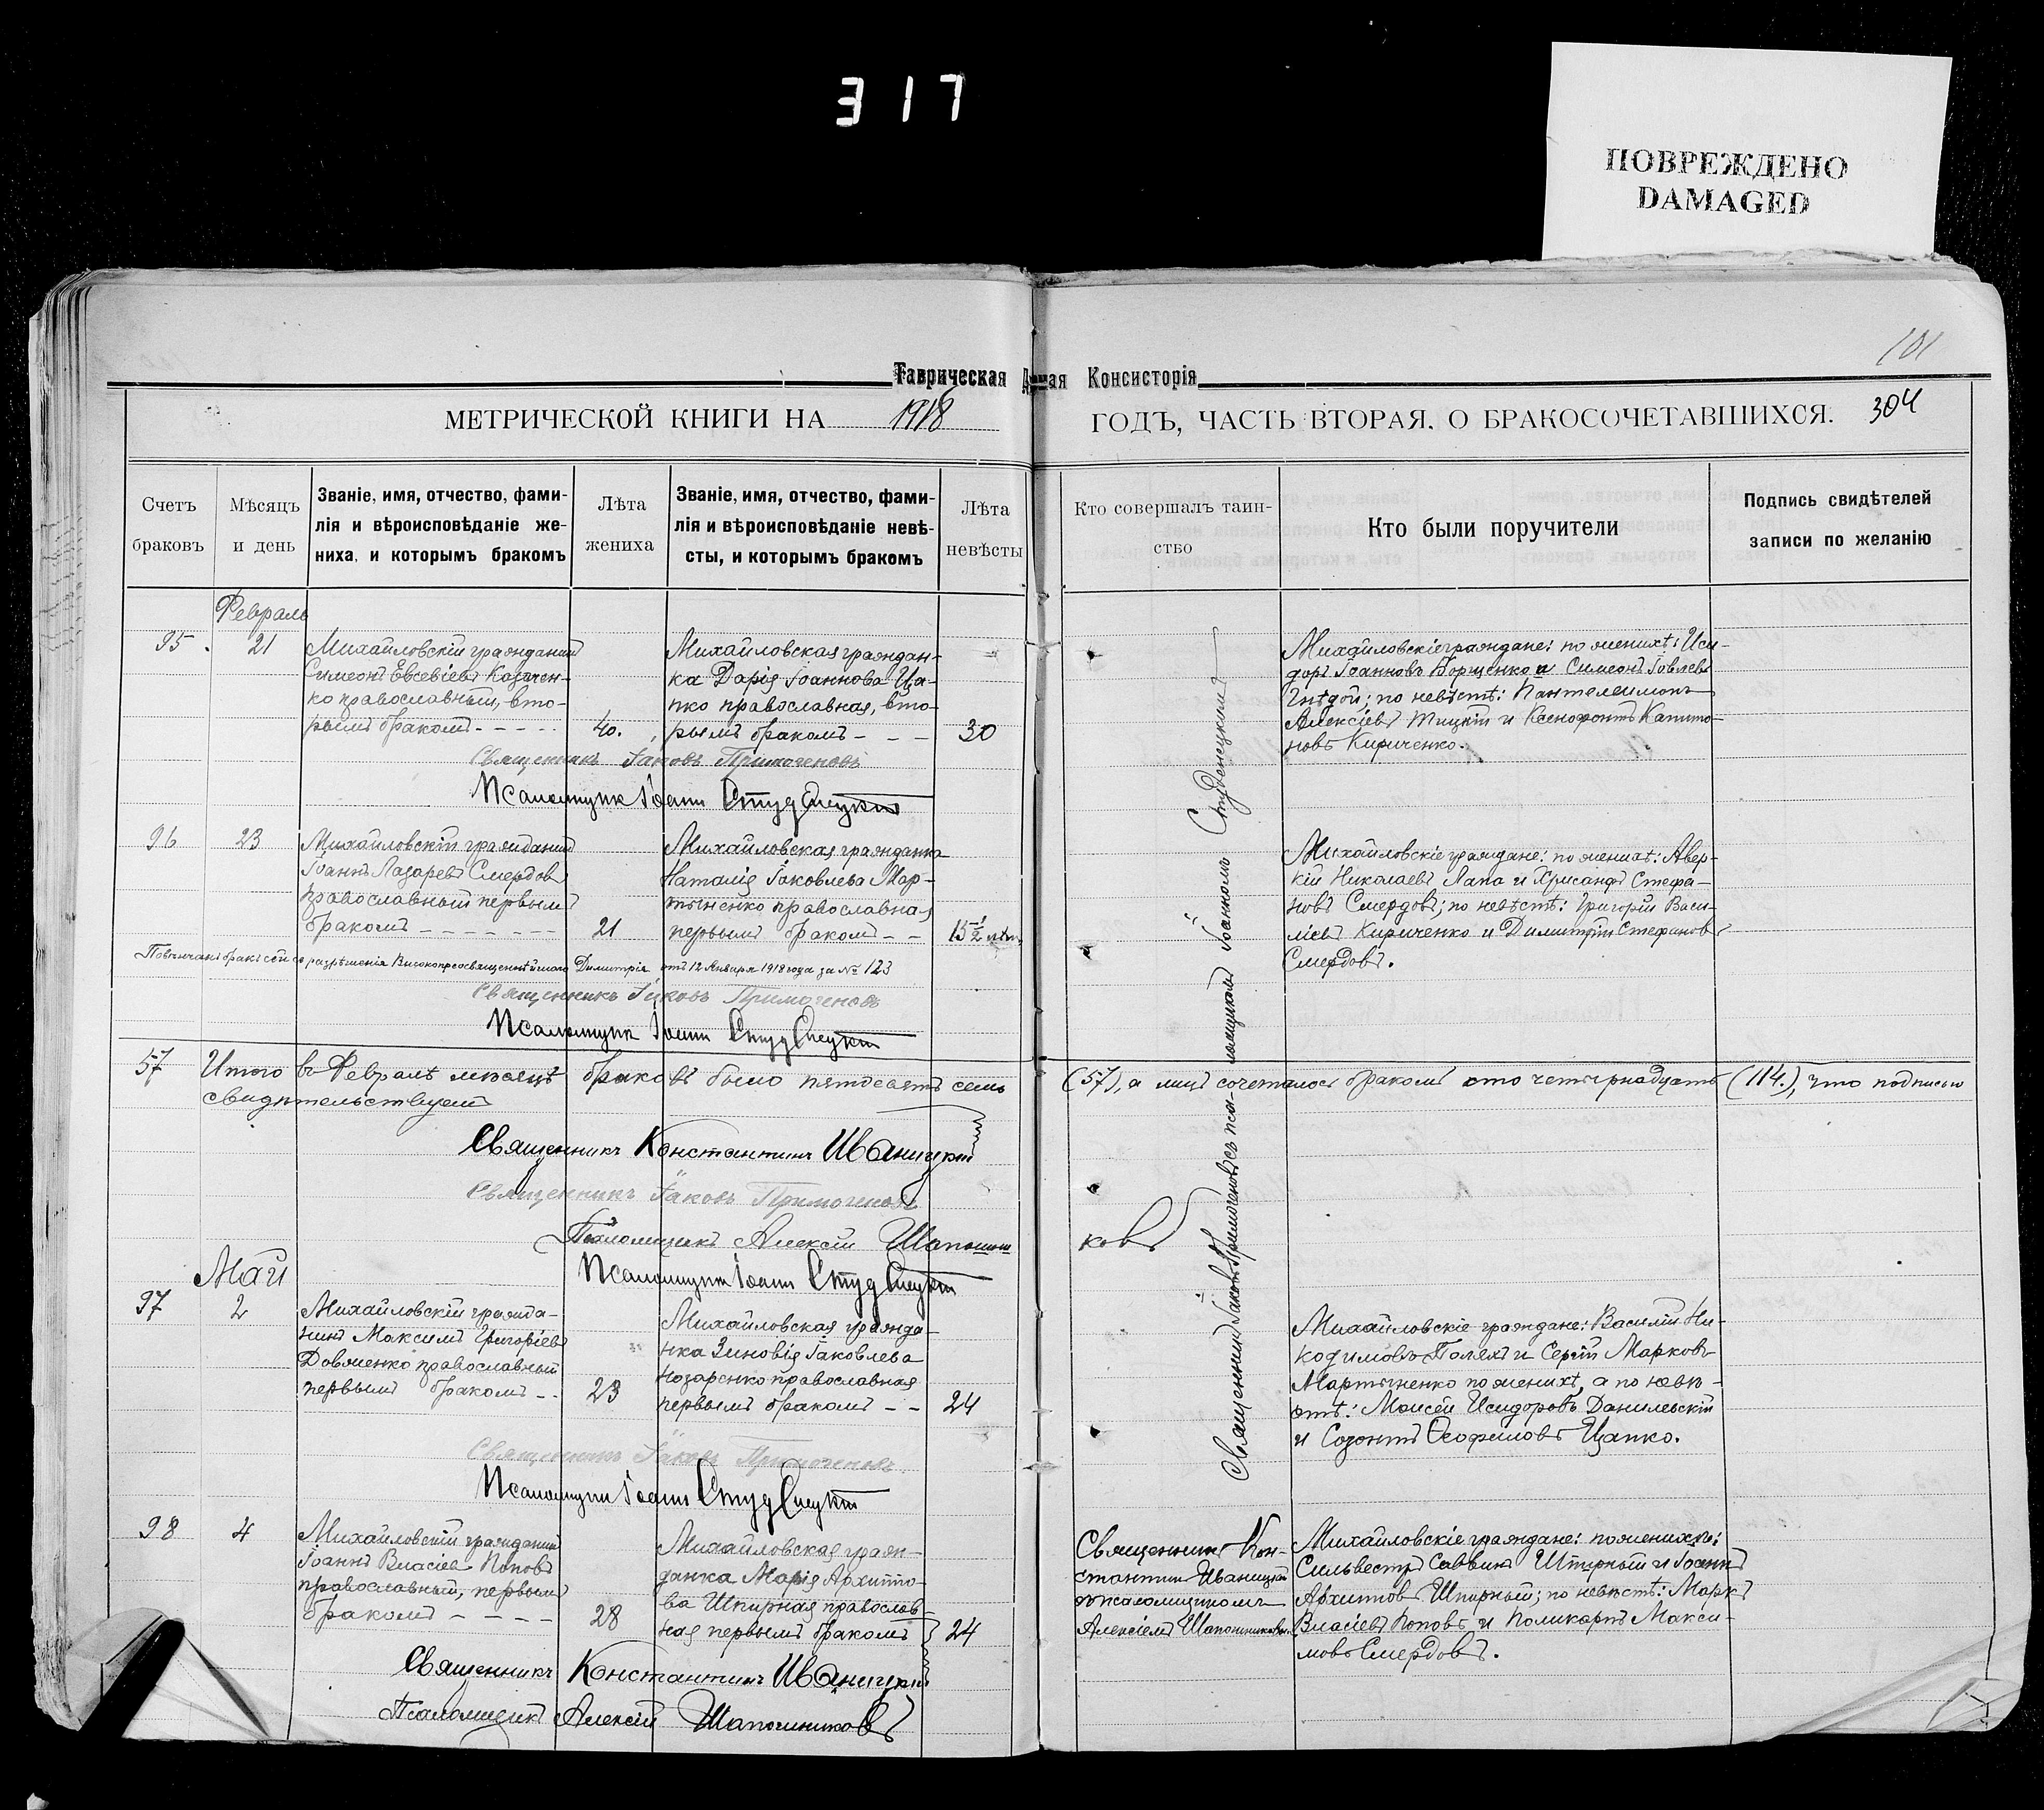 317
ПОВРЕЖДЕНО
DAMAGED
101
Таврическая Д ная Консисторія
МЕТРИЧЕСКОЙ КНИГИ НА 1918 ГОДЪ, ЧАСТЬ ВТОРАЯ, О БРАКОСОЧЕТАВШИХСЯ. 304
Счетъ
браковъ
Мѣсяцъ
и день
Званіе, имя, отчество, фами-
лія и вѣроисповѣданіе же-
ниха, и которымъ бракомъ
Лѣта
жениха
Званіе, имя, отчество, фами-
лія и вѣроисповѣданіе невѣ-
сты, и которымъ бракомъ
Лѣта
невѣсты
Кто совершалъ таин-
ство
Кто были поручители
Подпись свидѣтелей
записи по желанію
Февраль
95.
21
Михайловскій гражданинъ
Симеонъ Евсевіевъ Казачен-
ко православный, вто-
рымъ бракомъ - - - - -
40.
Михайловская граждан-
ка Дарія Іоаннова Ца-
пко православная, вто-
рымъ бракомъ - - -
30
Михайловскіе граждане: по женихѣ: Иси-
доръ Іоанновъ Борщенко и Симеонъ Іовлевъ
Гнѣдой; по невѣстѣ: Пантелеимонъ
Алексіевъ Тицкій и Ксенофонтъ Капито-
новъ Кириченко.
Священникъ Іаковъ Примогеновъ
Псаломщик Іоанн Студенецкій
96
23
Михайловскій гражданинъ
Іоаннъ Лазаревъ Смердовъ
православный первымъ
бракомъ - - - - - - -
21
Михайловская гражданка
Наталія Іаковлева Мар-
тыненко православная
первымъ бракомъ - -
15 1/2 лѣтъ
Михайловскіе граждане: по женихѣ: Авер-
кій Николаевъ Лапа и Хрисанфъ Стефа-
новъ Смердовъ; по невѣстѣ: Григорій Васи-
ліевъ Кириченко и Димитрій Стефановъ
Смердовъ.
Повѣнчанъ бракъ сей съ разрѣшенія Высокопреосвященнѣйшаго Димитрія отъ 12 Января 1918 года за № 123
Священникъ Іаковъ Примогеновъ
Псаломщик Іоанн Студенецкій
57 Итого въ Февралѣ мѣсяцѣ браковъ было пятдесятъ семь (57), а лицъ сочеталось бракомъ сто четырнадцать (114.), что подписью
свидѣтельствуемъ
Священникъ Константинъ Иваницкій
Священникъ Іаковъ Примогеновъ
Псаломщикъ Алексій Шапошни
ковъ
Псаломщик Іоанн Студенецкій
Священникъ Іаковъ Примогеновъ съ псаломщикомъ Іоанномъ Студенецкимъ
Май
97
2
Михайловскій гражда-
нинъ Максимъ Григоріевъ
Довженко православный
первымъ бракомъ - -
23
Михайловская гражда-
нка Зиновія Іаковлева
Назаренко православная
первымъ бракомъ - -
24
Михайловскіе граждане: Василій Ни-
кодимовъ Поляхъ и Сергій Марковъ
Мартыненко по женихѣ, а по невѣ-
стѣ: Моисей Исидоровъ Данилевскій
и Созонтъ Ѳеофиловъ Цапко.
Священникъ Іаковъ Примогеновъ.
Псаломщик Іоанн Студенецкій
98
4
Михайловскій гражданинъ
Іоаннъ Власіевъ Поповъ
православный, первымъ
бракомъ - - - -
28
Михайловская граж-
данка Марія Архиппо-
ва Шпирная православ-
ная первымъ бракомъ
24
Священникъ Кон-
стантинъ Иваницкій
съ псаломщикомъ
Алексіемъ Шапошниковымъ
Михайловскіе граждане: по женихѣ:
Сильвестръ Саввинъ Шпирный и Іоаннъ
Архиповъ Шпирный; по невѣстѣ: Маркъ
Власіевъ Поповъ и Поликарпъ Макси-
мовъ Смердовъ.
Священникъ Константинъ Иваницкій
Псаломщикъ Алексій Шапошниковъ